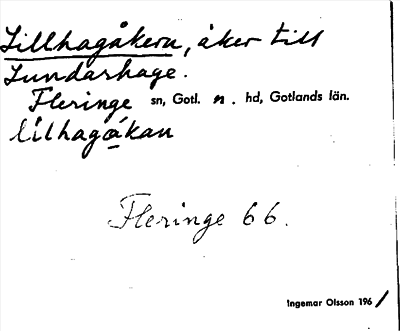 Lillhagåkern, åker till
Lundarhage.
Fleringe sn, Gotl. n. hd, Gotlands län.
lilhagåkan
Fleringe 66.
Ingemar Olsson 196/